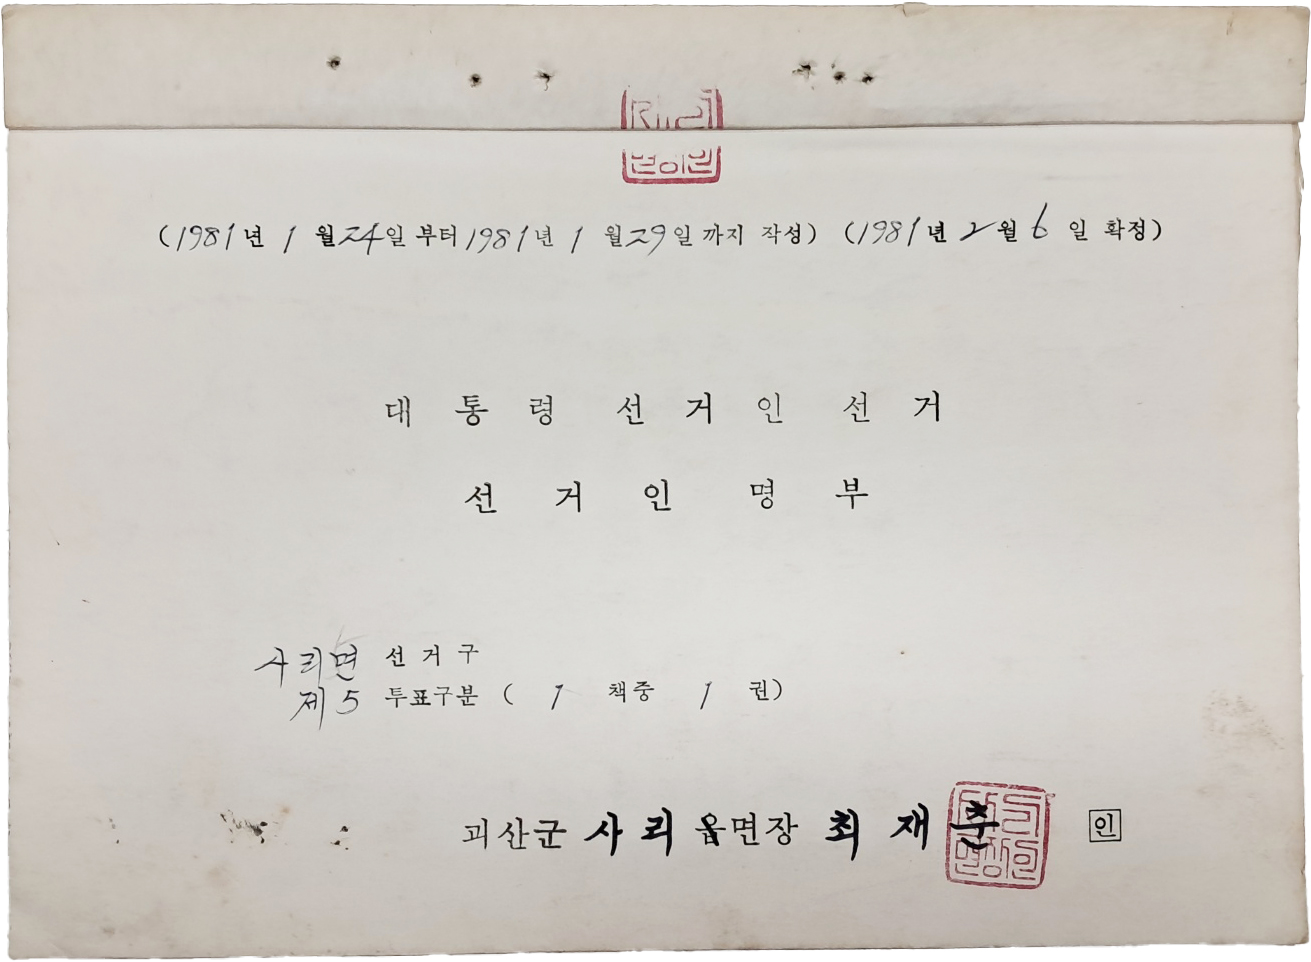 (1981년 1월 24일 부터 1981년 1월 29일 까지 작성) (1981년 2월 6일 확정)
대통령선거인선거
선거인명부
사리면 선거구
제5 투표구분 ( 1 책중 1 권)
괴산군 사리 읍면장 최재춘 인